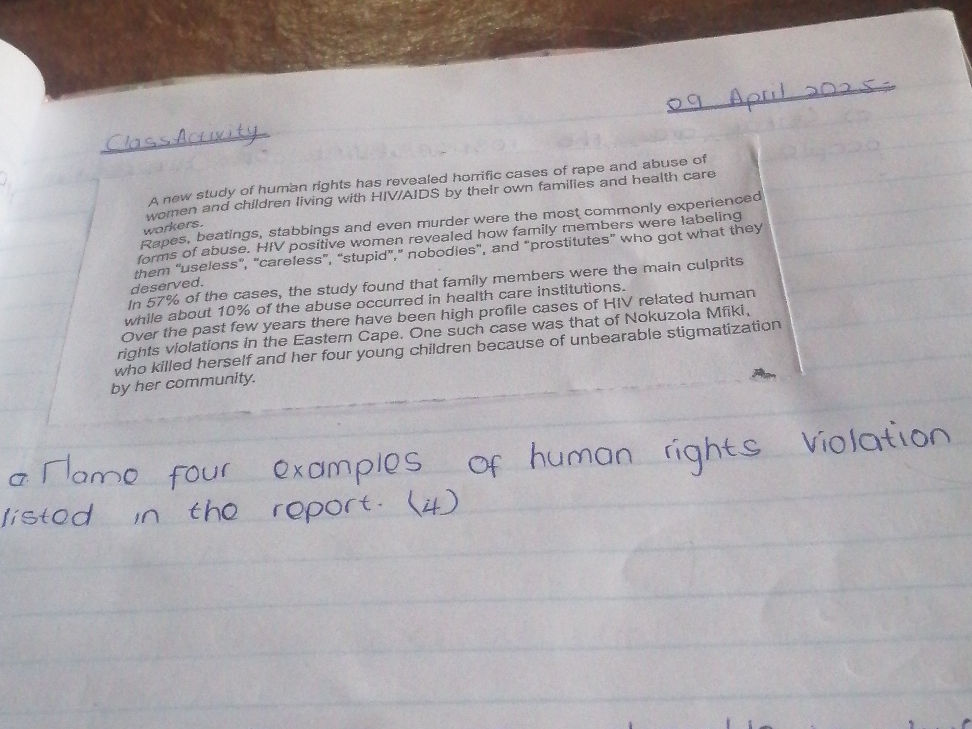 09 April 2025
Class Activity
A new study of human rights has revealed horrific cases of rape and abuse of
women and children living with HIV/AIDS by their own families and health care
workers.
Rapes, beatings, stabbings and even murder were the most commonly experienced
forms of abuse. HIV positive women revealed how family members were labeling
them "useless", "careless", "stupid"," nobodies", and "prostitutes" who got what they
deserved.
In 57% of the cases, the study found that family members were the main culprits
while about 10% of the abuse occurred in health care institutions.
Over the past few years there have been high profile cases of HIV related human
rights violations in the Eastern Cape. One such case was that of Nokuzola Mfiki,
who killed herself and her four young children because of unbearable stigmatization
by her community.
a. Name four examples of human rights violation
listed in the report. (4)